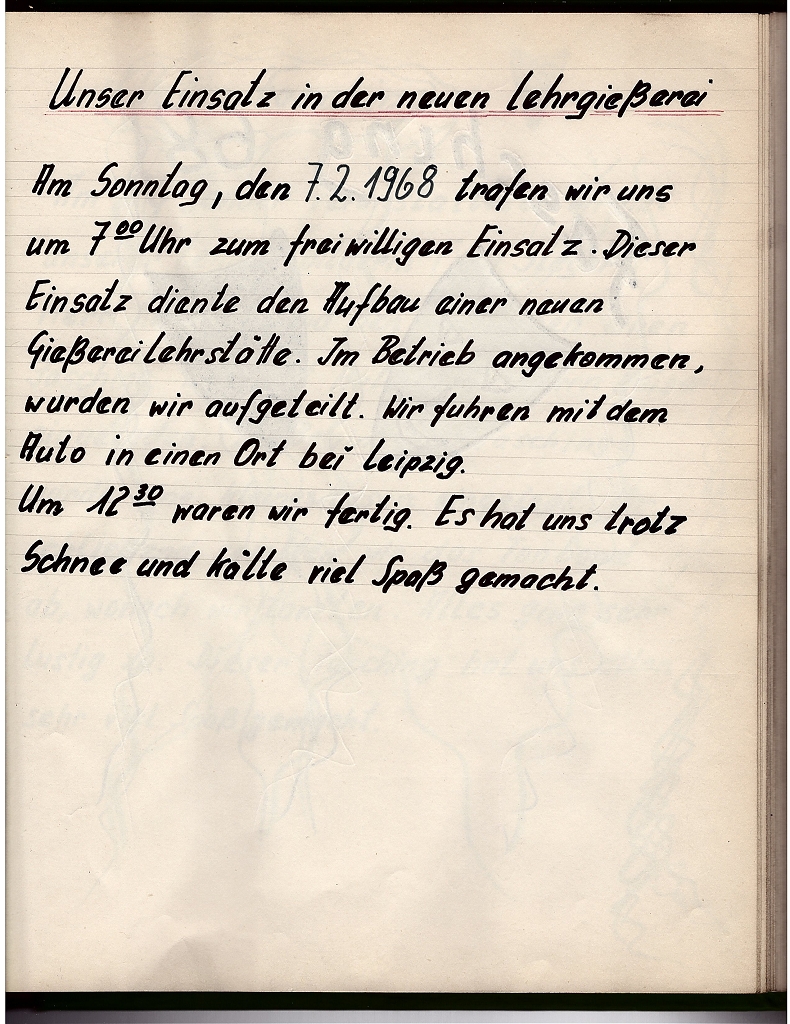 Unser Einsatz in der neuen Lehrgießerei
Am Sonntag, den 7.2.1968 trafen wir uns
um 7⁰⁰ Uhr zum freiwilligen Einsatz. Dieser
Einsatz diente den Aufbau einer neuen
Gießereilehrstätte. Im Betrieb angekommen,
wurden wir aufgeteilt. Wir fuhren mit dem
Auto in einen Ort bei Leipzig.
Um 12³⁰ waren wir fertig. Es hat uns trotz
Schnee und Kälte viel Spaß gemacht.